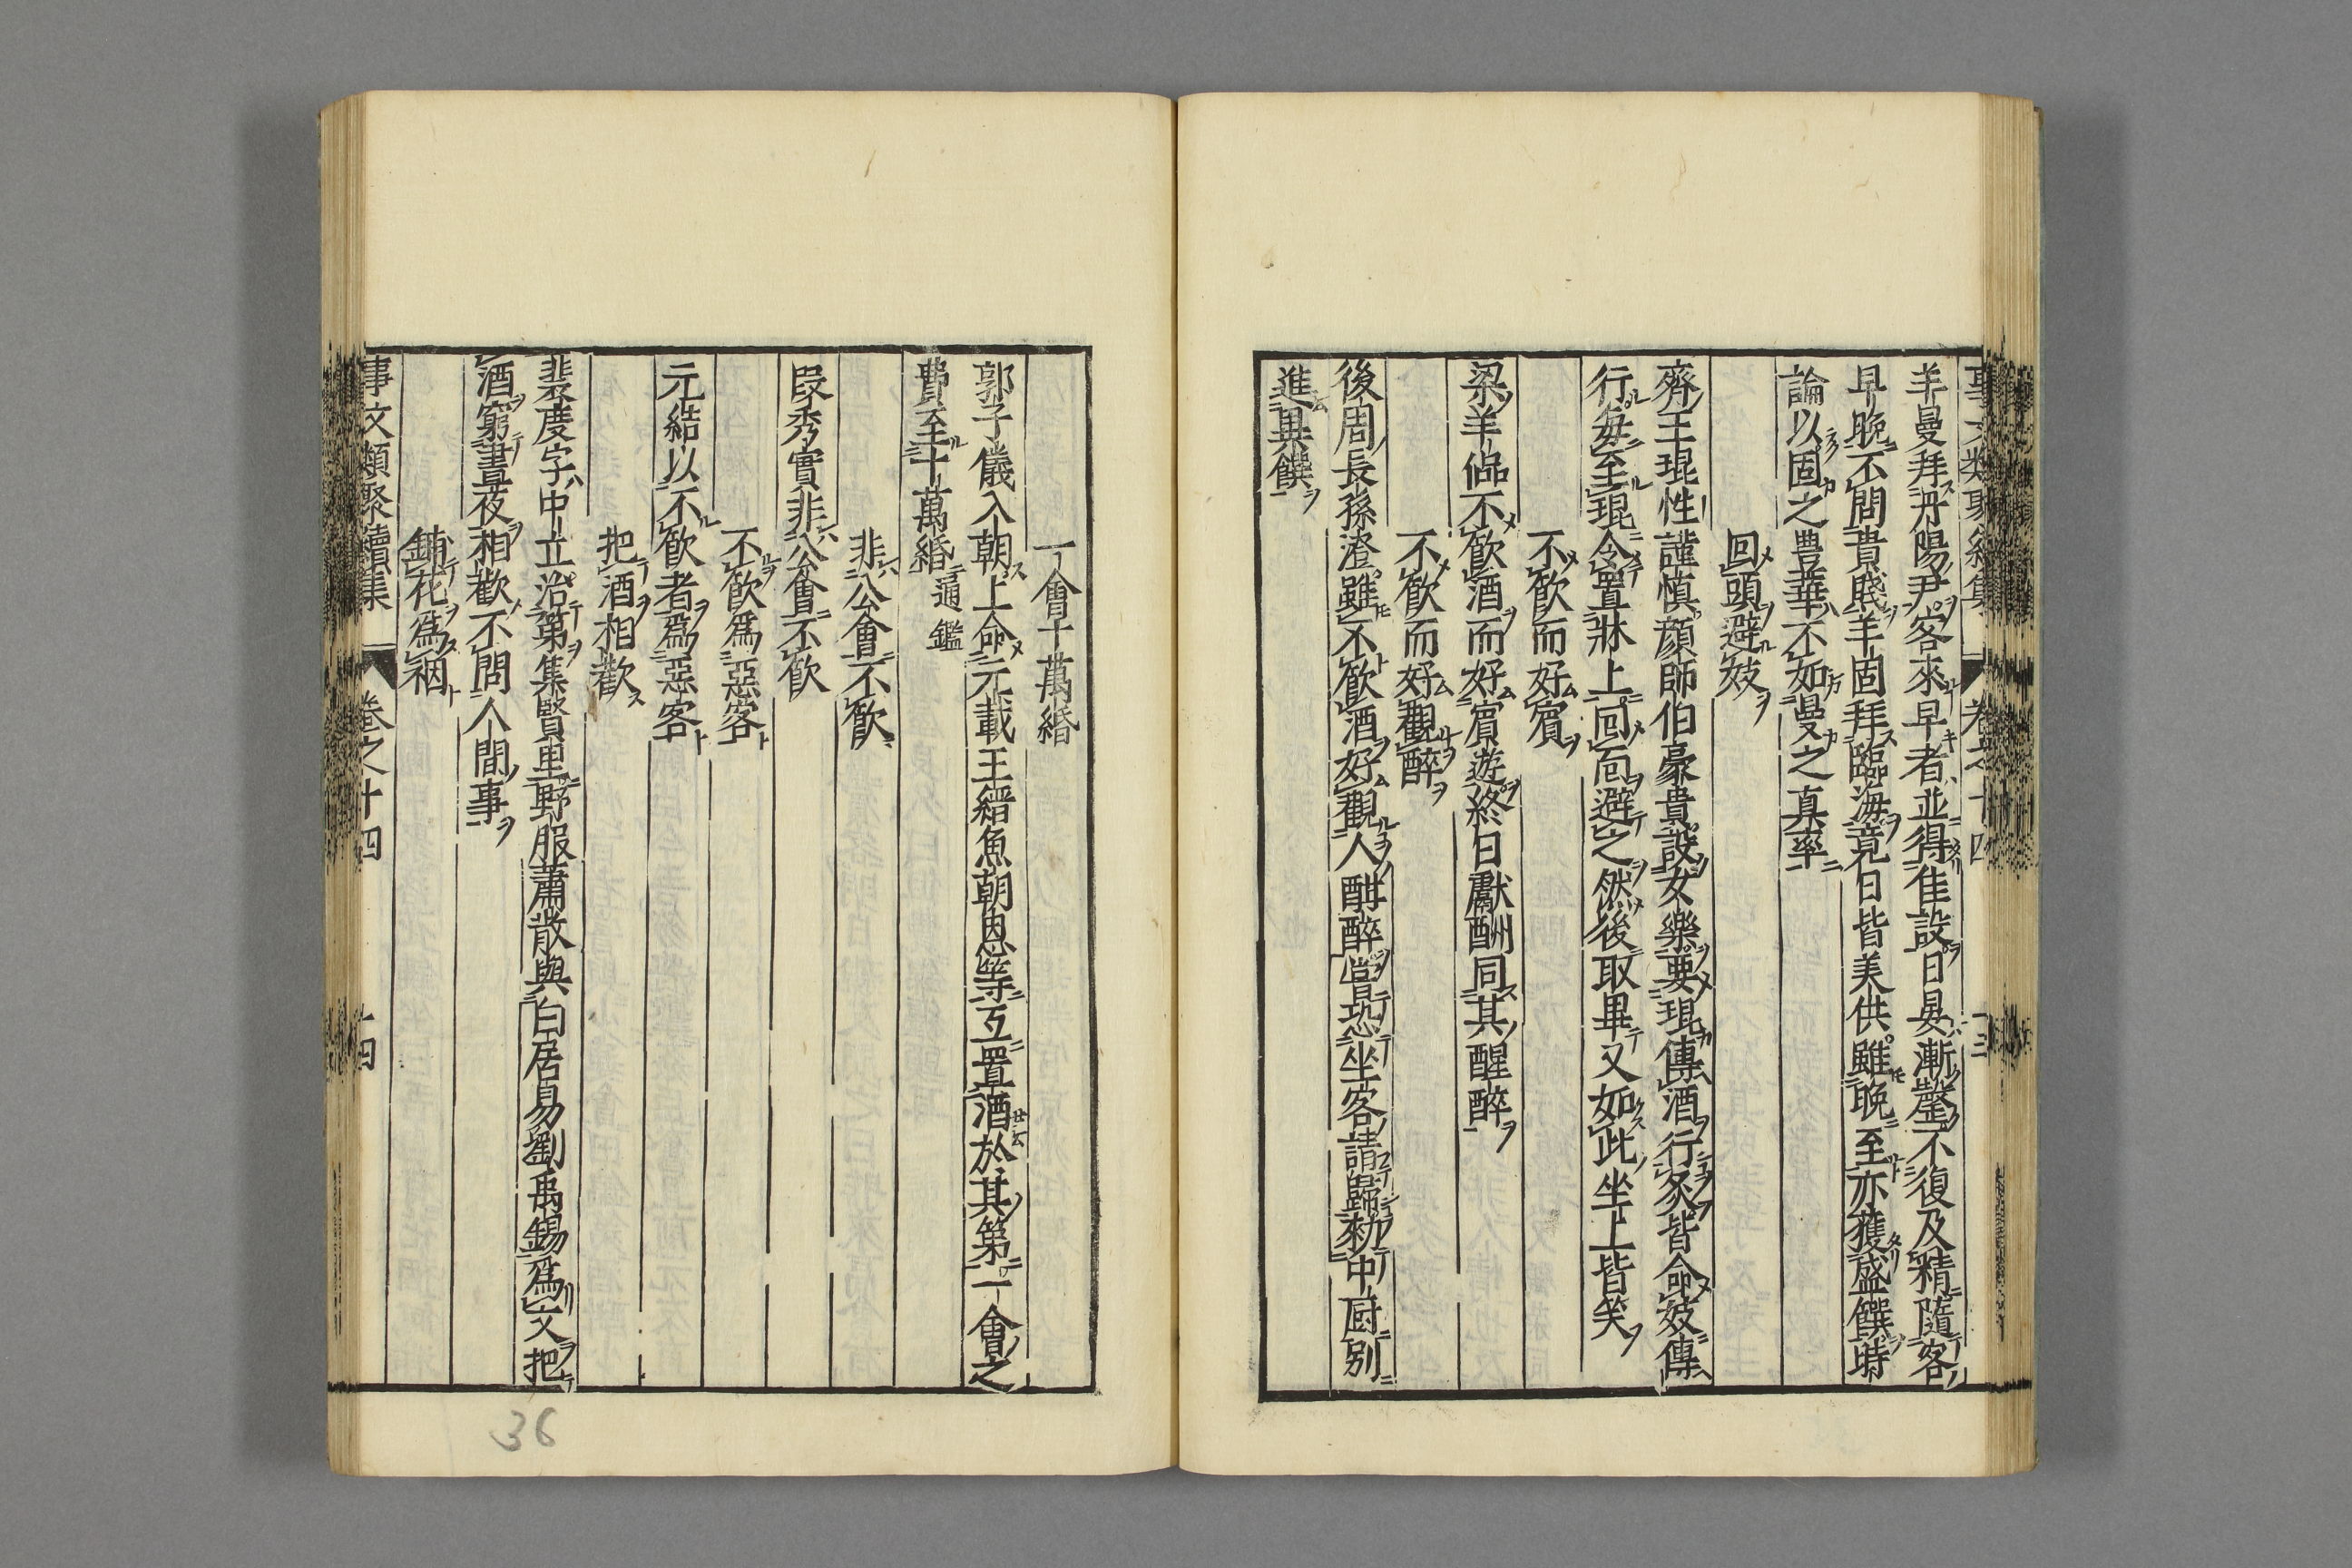 事文類聚續集 卷之十四 十三
羊曼拜丹陽尹客來早者並得佳設日晏漸罄不復及精隨客
早晚不問貴賤羊固拜臨海竟日皆美供雖晚至亦獲盛饌時
論以固之豊華不如曼之真率
回頭避妓
齊王琨性謹慎顔師伯豪貴設女樂要琨傳酒行炙皆命妓傳
行每至琨令置牀上回面避之然後取畢又如此坐上皆笑
不飲而好賓
梁羊侃不飲酒而好賓遊終日獻酬同其醒醉
不飲而好觀醉
後周長孫澄雖不飲酒好觀人酣醉嘗恐坐客請歸勑中厨别
進異饌
一會十萬緡
郭子儀入朝上命元載王縉魚朝恩等互置酒於其第一會之
費至十萬緡 通鑑
非公會不飲
段秀實非公會不飲
不飲爲惡客
元結以不飲者爲惡客
把酒相歡
裴度字中立治第集賢里野服蕭散與白居易劉禹錫爲文把
酒窮晝夜相歡不問人間事
鋪花爲裀
事文類聚續集 卷之十四 十四
36